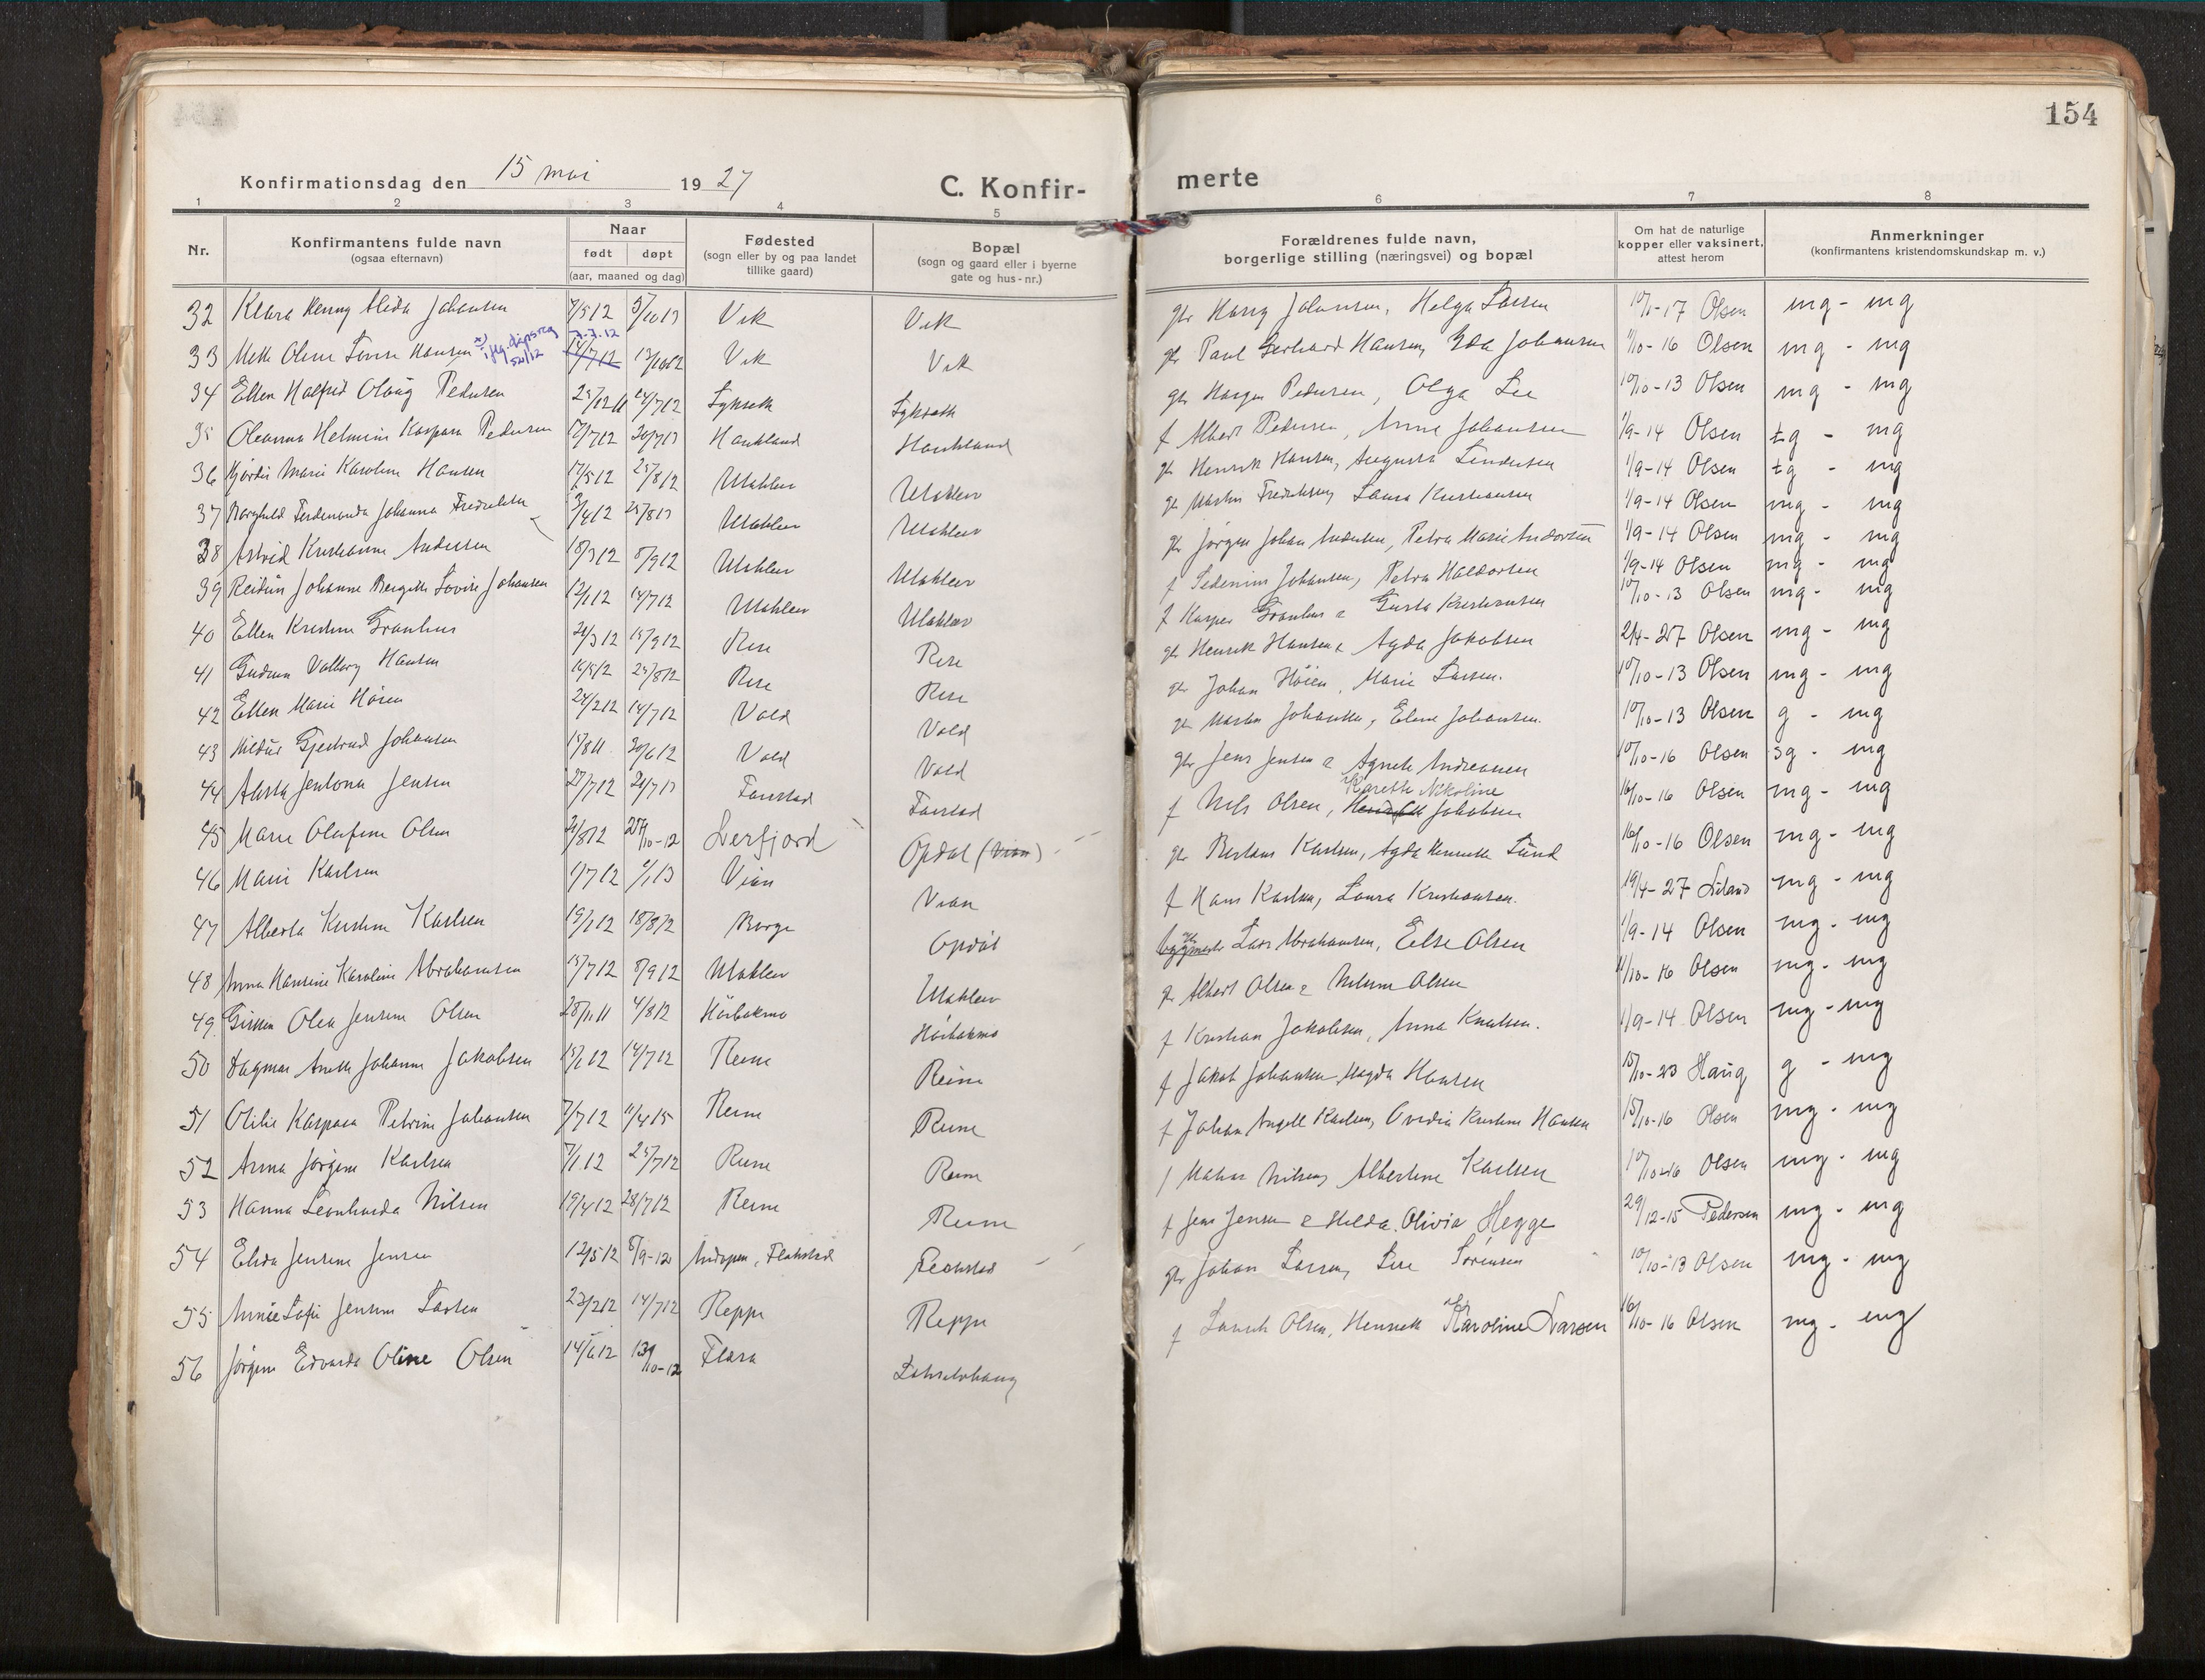 154
Konfirmationsdag den 15 mai 1927
C. Konfir-
merte
1 2 3 4 5 6 7 8
Nr.
Konfirmantens fulde navn
(ogsaa efternavn)
Naar
født døpt
(aar, maaned og dag)
Fødested
(sogn eller by og paa landet
tillike gaard)
Bopæl
(sogn og gaard eller i byerne
gate og hus-nr.)
Forældrenes fulde navn,
borgerlige stilling (næringsvei) og bopæl
Om hat de naturlige
kopper eller vaksinert,
attest herom
Anmerkninger
(konfirmantens kristendomskundskap m. v.)
32 Klara Henny Alida Johansen 7/5 12 Vik Vik gbr Harry Johansen, Helga Larsen 10/1-17 Olsen mg - mg
7.7.12
33 Mette Oline Lovise Hansen 14/7 12 13/10 12 Vik Vik gbr Paul Gerhard Hansen, Eda Johansen 1/10-16 Olsen mg - mg
34 Ellen Halfrid Olaug Pedersen 25/12 11 24/7 12 gbr Pedersen, Olga Lie 10/10-13 Olsen mg - mg
35 Oleanna Helmine Kaspara Pedersen 17/7 12 Haukland Haukland f Albert Pedersen, Anna Johansen 1/9-14 Olsen tg - mg
36 Hjørdis Marie Karoline Hansen 17/5 12 25/8 12 Utakleiv Utakleiv gbr Henrik Hansen, Augusta 1/9-14 Olsen tg - mg
37 Borghild Ferdinanda Johanna Fredriksen 3/4 12 Utakleiv Utakleiv gbr Martin Fredriksen, Laura Kristiansen 1/9-14 Olsen mg - mg
38 Astrid Kristianne Andersen 18/3 12 8/9 12 Utakleiv Utakleiv gbr Jørgen Johan Andersen, Petra Marie Andersen 1/9-14 Olsen mg - mg
39 Reidun Johanne Bergitte Lovise Johansen 12/1 12 14/7 12 Utakleiv Utakleiv f Johansen, Petra Haldorsen 1/9-14 Olsen mg - mg
40 Ellen Kristine Granhus 21/3 12 15/9 12 Rise Rise f Kasper Granhus & Gusta Kristiansen 10/10-13 Olsen mg - mg
41 Gudrun Valborg Hansen 16/5 12 25/8 12 Rise Rise gbr Henrik Hansen & Agda Jakobsen 2/4-27 Olsen mg - mg
42 Ellen Marie Høien 24/2 12 14/7 12 Vold Vold gbr Johan Høien, Marie Larsen. 10/10-13 Olsen mg - mg
43 Gjertrud Johansen 15/8 11 30/6 12 Vold Vold gbr Martin Johansen, Eline Johansen. 10/10-13 Olsen g - mg
44 Jentona Jensen 27/7 12 Farstad Farstad gbr Jens Jensen & Agnete Andreassen 10/10-16 Olsen sg - mg
Karette Nikoline
45 Marie Olufine Olsen 27/10-12 Lerfjord Opdøl (Vian) f Nils Olsen, Jakobsen 16/10-16 Olsen mg - mg
46 Marie Karlsen 1/7 12 Vian Vian gbr Karlsen, Agda Henriette Lund 16/10-16 Olsen mg - mg
47 Alberta Kristine Karlsen 19/1 12 18/8 12 Borge Opdøl f Hans Karlsen, Laura Kristiansen. 19/4-27 mg - mg
48 Anna Hansine Karoline Abrahamsen 15/7 12 8/9 12 Utakleiv Utakleiv Lars Abrahamsen, Else Olsen 1/9-14 Olsen mg - mg
49 Olea Jensine Olsen 28/11 11 4/8 12 gbr Albert Olsen & Olsen 11/10-16 Olsen mg - mg
50 Dagmar Anette Johanne Jakobsen 15/1 12 14/7 12 Reine Reine f Kristian Jakobsen, Anna Knutsen. 1/9-14 Olsen mg - mg
51 Otilie Kaspara Petrine Johansen 7/7 12 11/4 15 Reine Reine f Jakob Johansen, Magda Hansen 15/10-23 Haug g - mg
52 Anna Jørgine Karlsen 7/1 12 25/7 12 Reine Reine f Johan Angell Karlsen, Ovidia Kristine Hansen 15/10-16 Olsen mg - mg
53 Hanna Leonharda Nilsen 19/4 12 28/7 12 Reine Reine f Nilsen, Albertine Karlsen 10/10-16 Olsen mg - mg
54 Elida Jensine Jensen 12/5 12 8/9-12 Andopen, Flakstad Flakstad f Jens Jensen & Hilda Olivia Hegge 29/12-15 Pedersen mg - mg
55 Sofie Jensine Larsen 23/2 12 14/7 12 Reppe Reppe gbr Johan Larsen, Lise Sørensen 10/10-13 Olsen mg - mg
56 Jørgine Edvarda Oline Olsen 14/6 12 13/10-12 Flæsa f Laurits Olsen, Henrikke Karoline Larsen 16/10-16 Olsen mg - mg